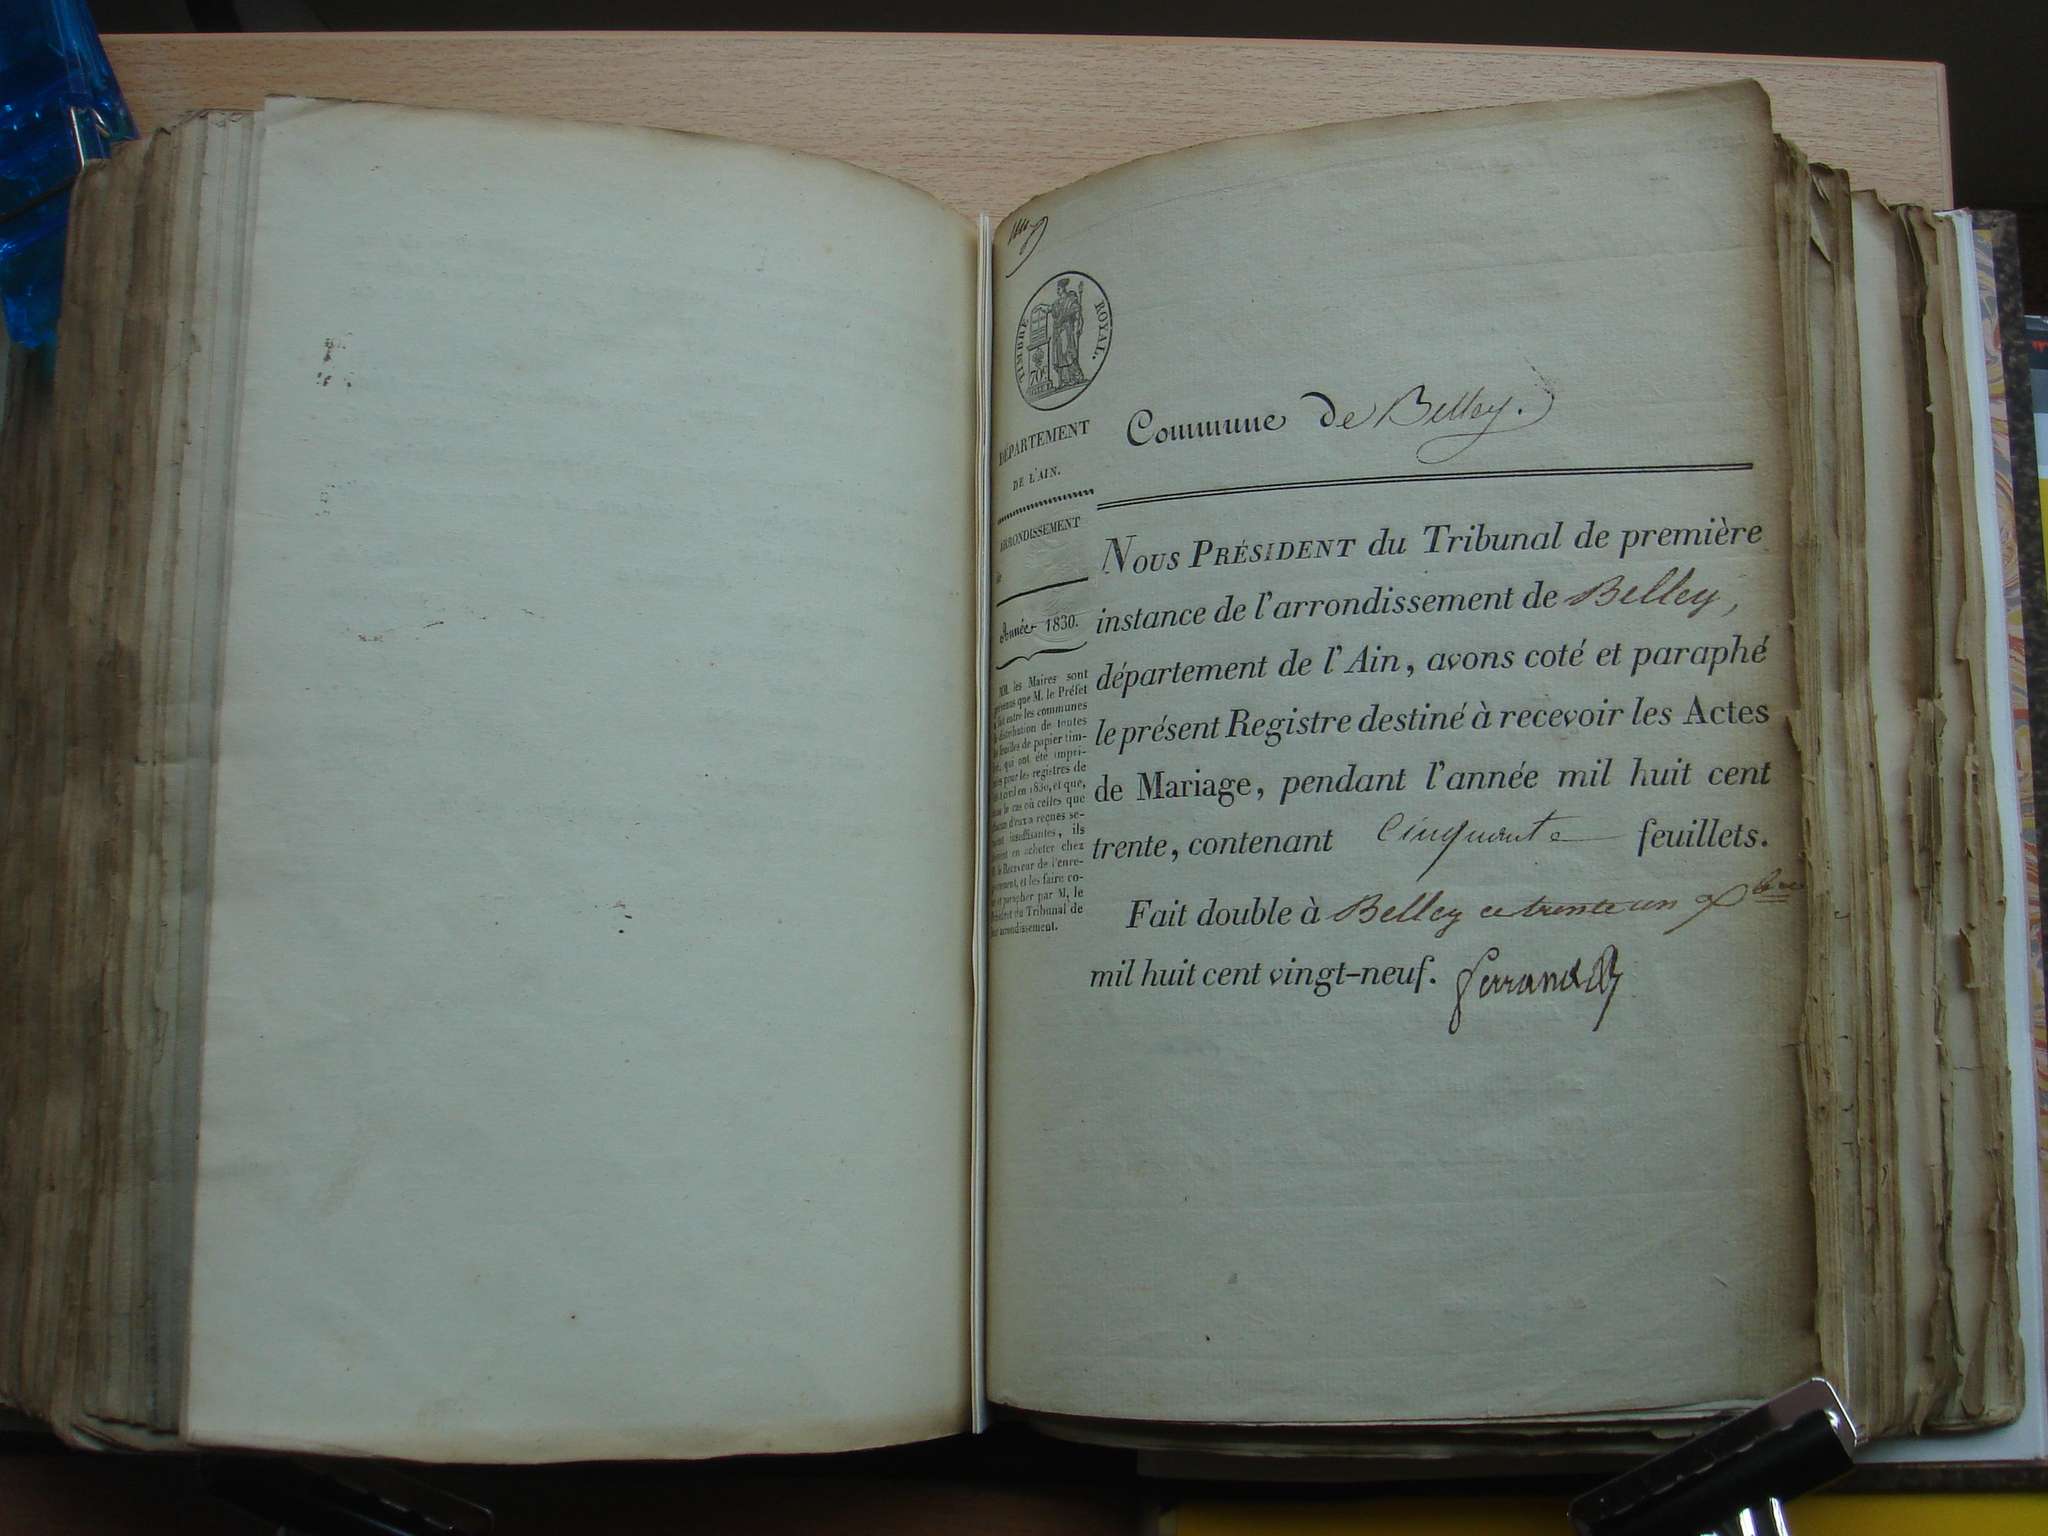 TIMBRE ROYAL.
70
DÉPARTEMENT
DE L'AIN.
ARRONDISSEMENT
de
Année 1830.
MM. les Maires sont
prévenus que M. le Préfet
a fait entre les communes
la distribution de toutes
les feuilles de papier tim-
bré, qui ont été impri-
mées pour les registres de
l'état civil en 1830, et que,
dans le cas où celles que
chacun d'eux a reçues se-
raient insuffisantes, ils
doivent en acheter chez
M. le Receveur de l'enre-
gistrement, et les faire co-
ter et parapher par M. le
Président du Tribunal de
leur arrondissement.
Commune de Belley.
NOUS PRÉSIDENT du Tribunal de première
instance de l'arrondissement de Belley,
département de l'Ain, avons coté et paraphé
le présent Registre destiné à recevoir les Actes
de Mariage, pendant l'année mil huit cent
trente, contenant Cinquante feuillets.
Fait double à Belley ce trente un Xbre
mil huit cent vingt-neuf. Ferrand